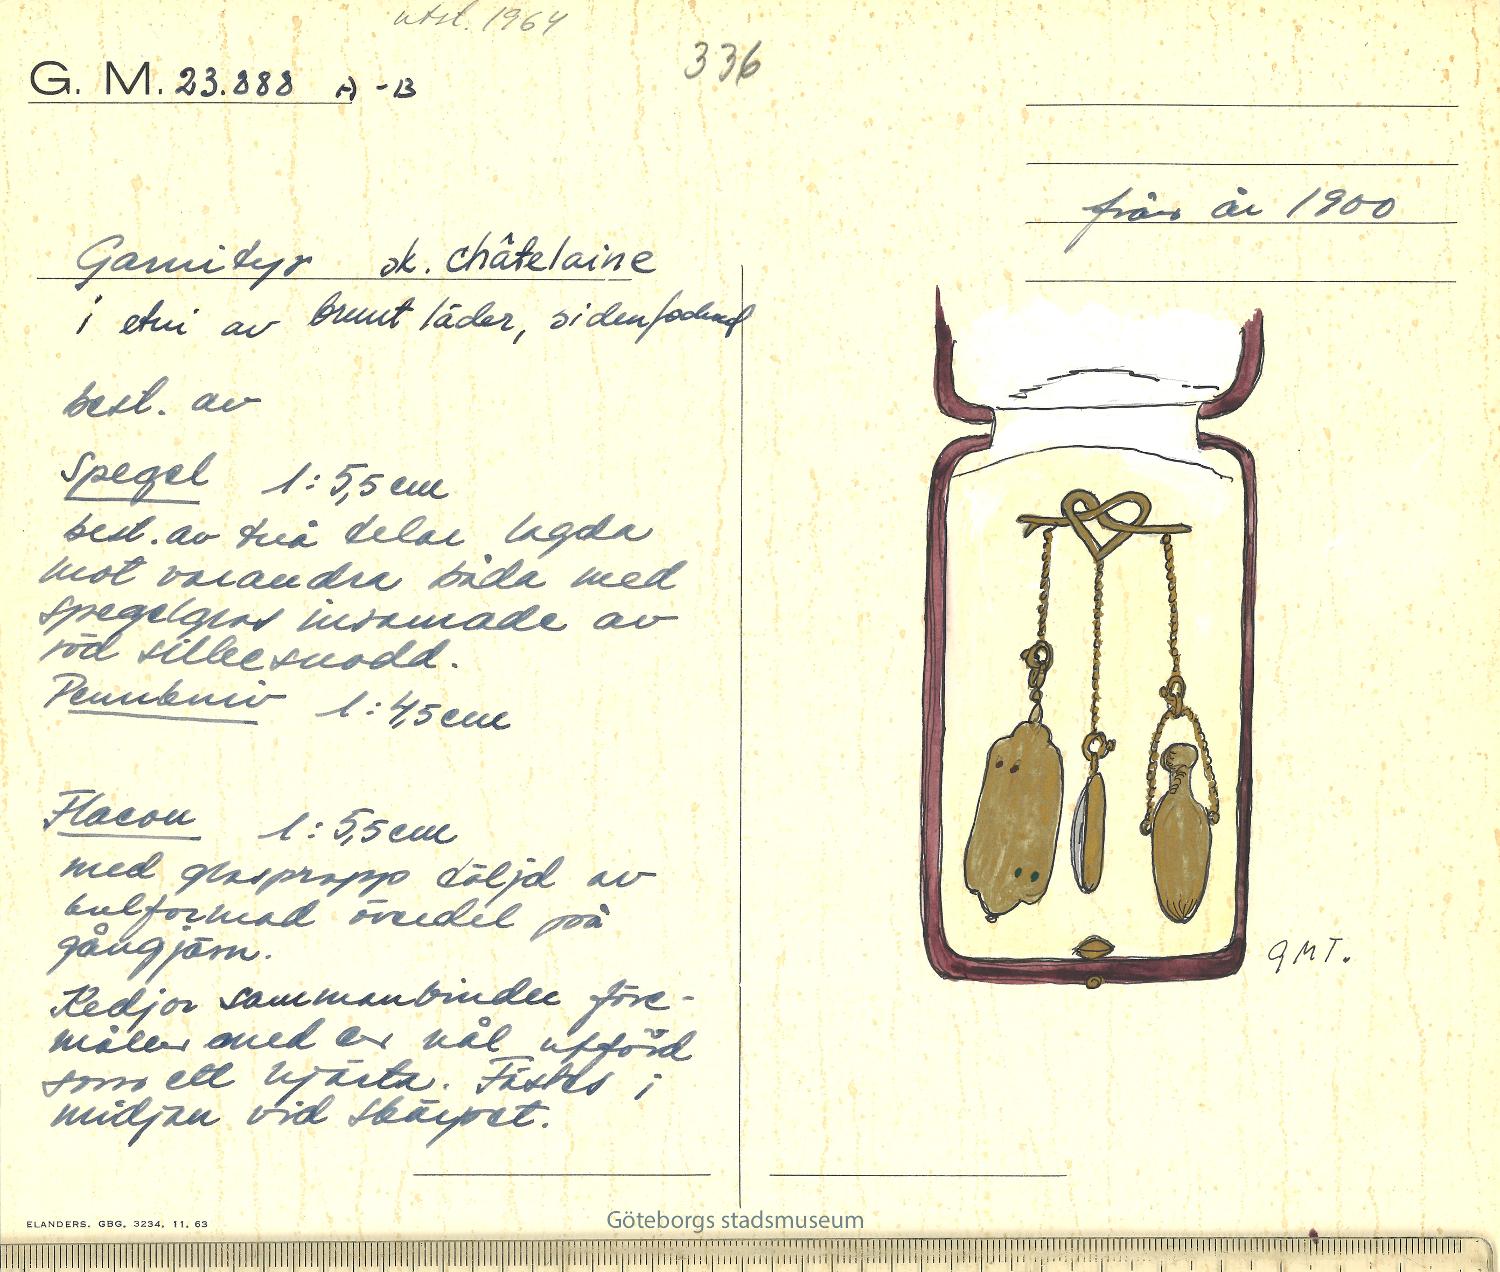 utst. 1964
336
G. M. 23.888 A - B
från år 1900
Garnityr sk. châtelaine
i etui av brunt läder, sidenfodrad
best. av
Spegel l: 5,5 cm
best. av två delar lagda
mot varandra båda med
spegelglas inramade av
röd silkesnodd.
Pennkniv l: 4,5 cm
Flacon l: 5,5 cm
med glaspropp döljd av
kulformad överdel på
gångjärn.
Kedjor sammanbinder före-
målen med en nål utförd
som ett hjärta. Fästes i
midjan vid skärpet.
GMT.
ELANDERS. GBG. 3234. 11. 63
Göteborgs stadsmuseum